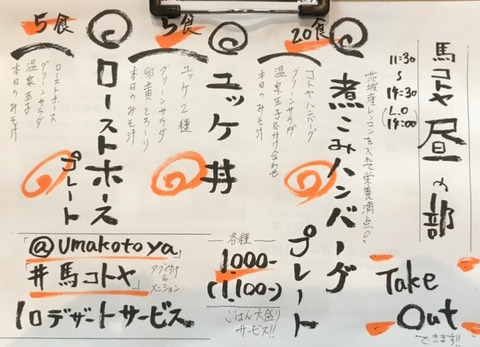 馬コトヤ 昼の部
11:30
~
14:30
(L.O
14:00)
20食
◎煮こみハンバーグプレート
茨城産レンコンを入れて栄養満点◎!
コトヤハンバーグ
グリーンサラダ
温泉玉子&付け合わせ
本日のみそ汁
5食
◎ユッケ丼
ユッケ2種
グリーンサラダ
卵黄とろ〜り
本日のみそ汁
5食
◎ローストホースプレート
ローストホース
グリーンサラダ
温泉玉子
本日のみそ汁
@umakotoya
#馬コトヤ
タグ付け
&
メンション
10デザートサービス
各種
1000-
(1,100-)
ごはん大盛り
サービス!!
Take
Out
できます!!